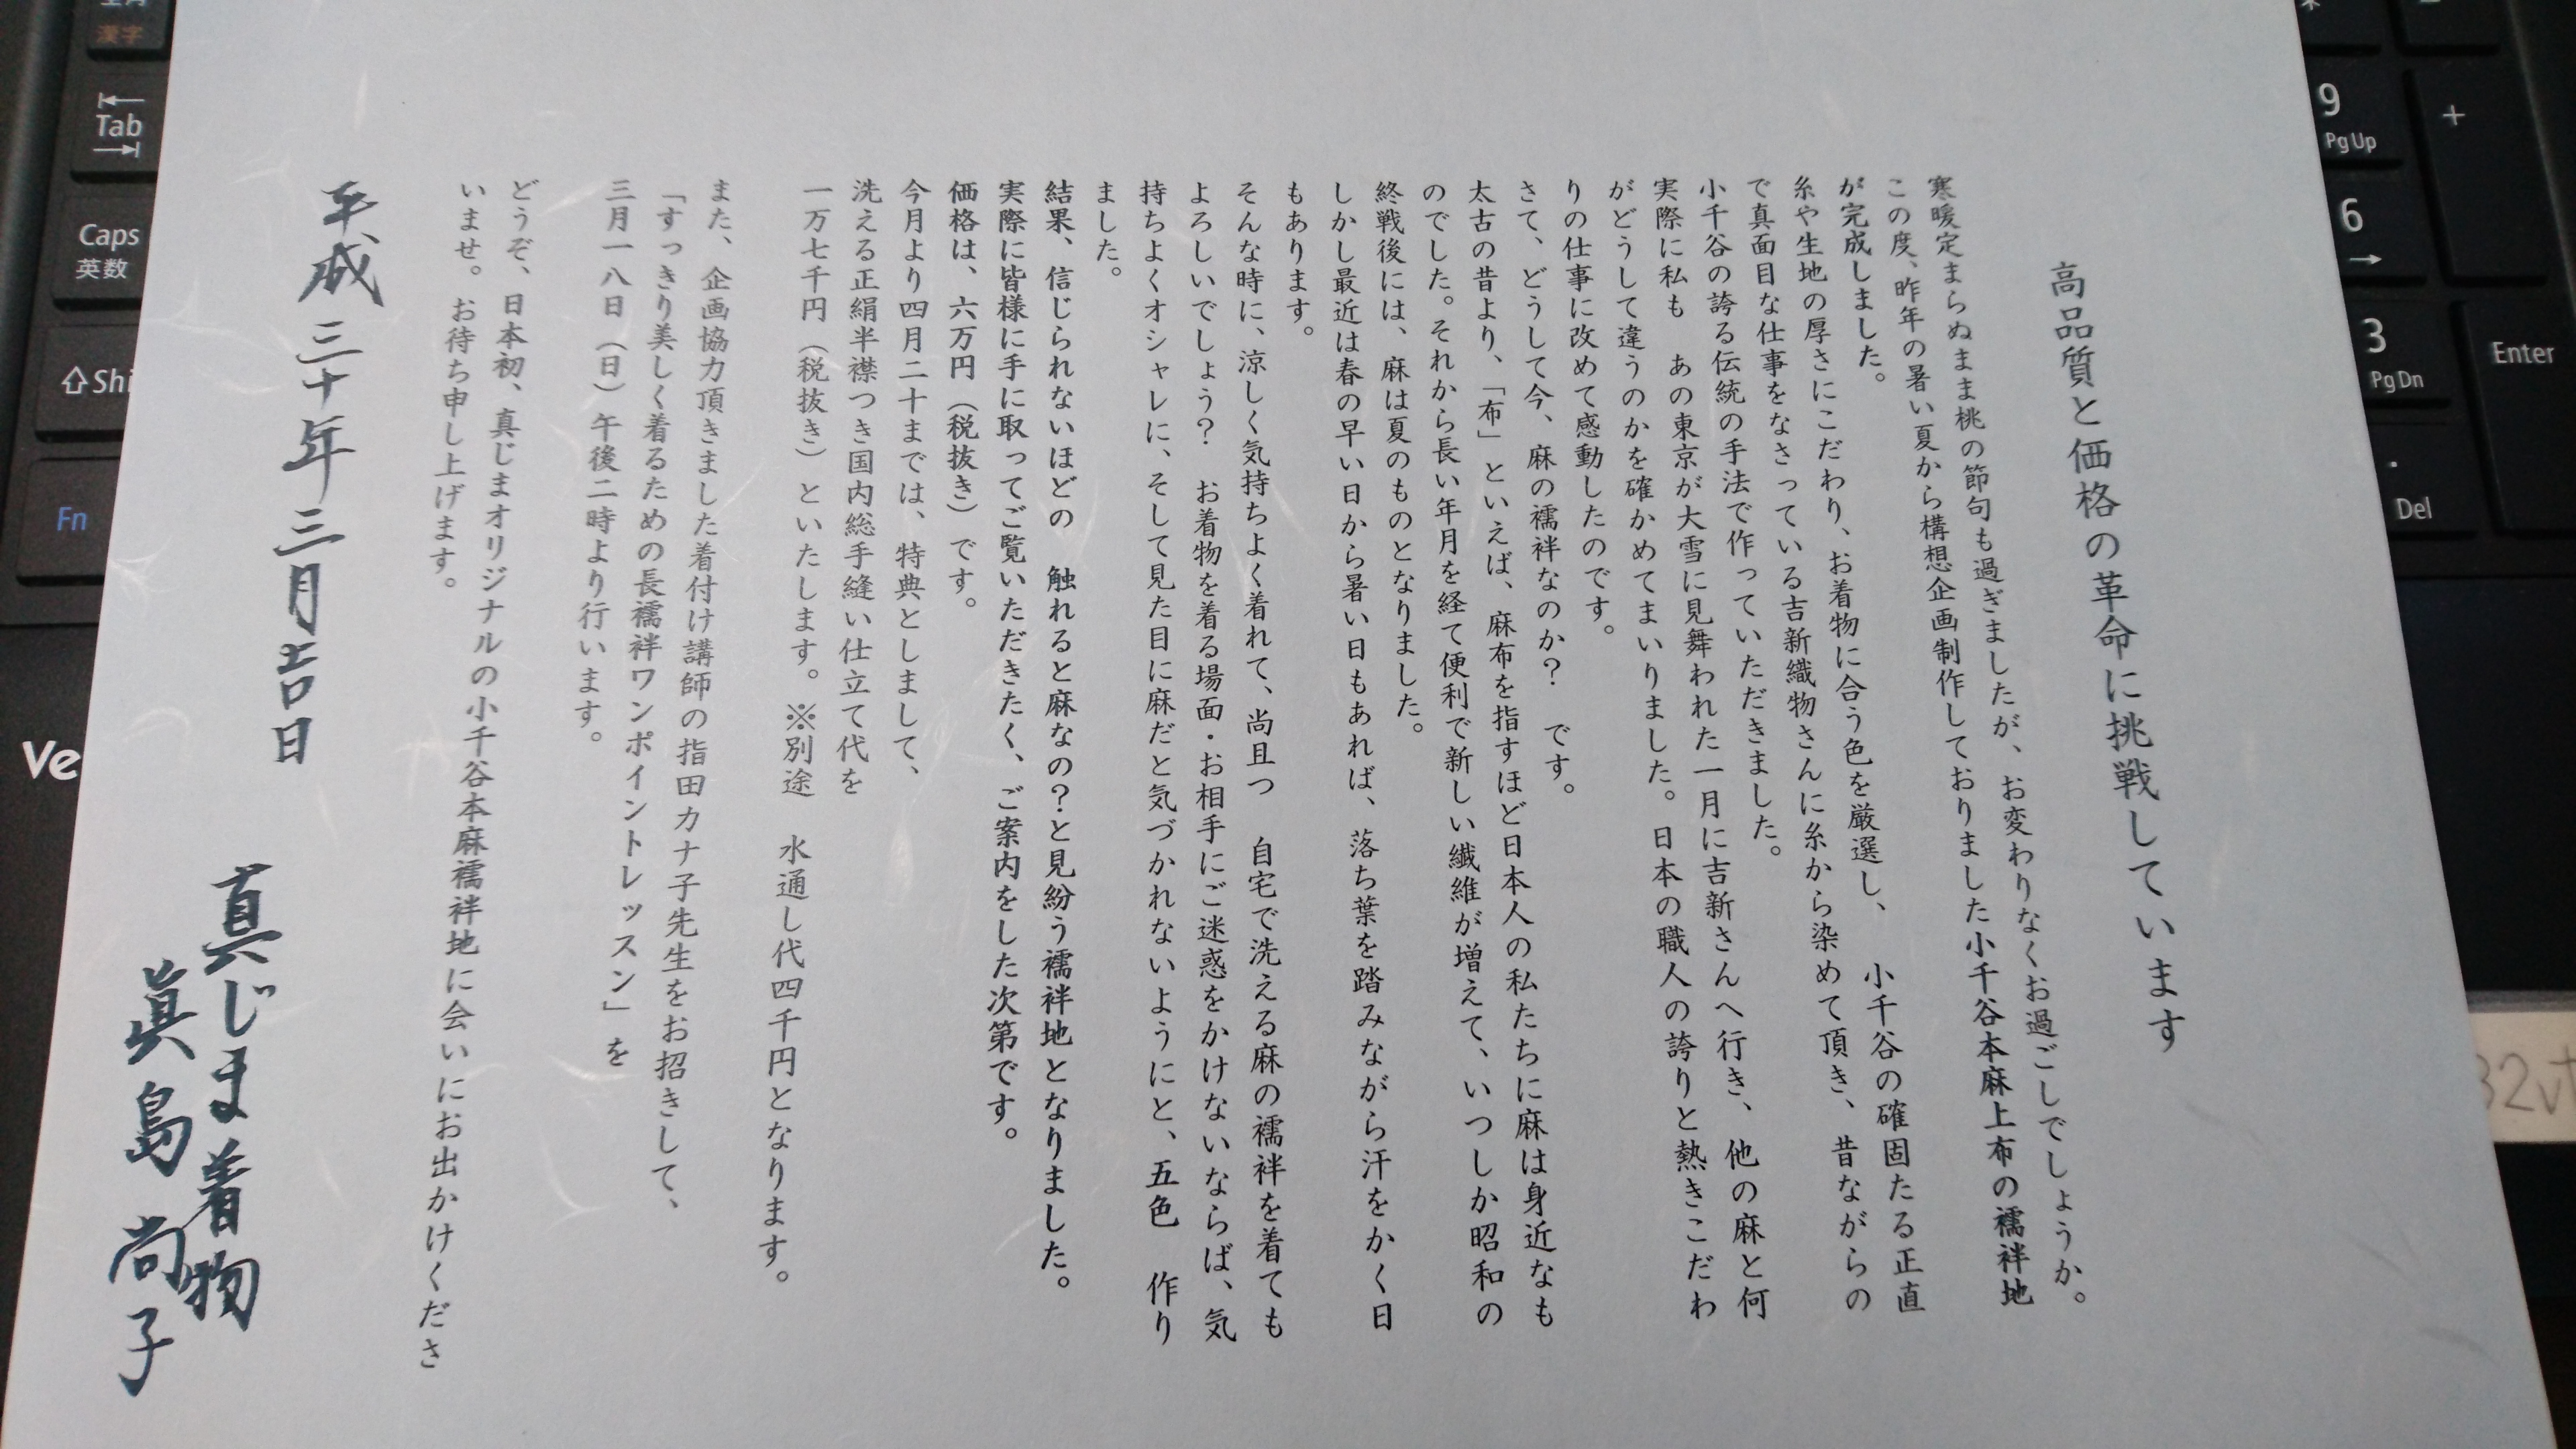 高品質と価格の革命に挑戦しています
寒暖定まらぬまま桃の節句も過ぎましたが、お変わりなくお過ごしでしょうか。
この度、昨年の暑い夏から構想企画制作しておりました小千谷本麻上布の襦袢地
が完成しました。
糸や生地の厚さにこだわり、お着物に合う色を厳選し、小千谷の確固たる正直
で真面目な仕事をなさっている吉新織物さんに糸から染めて頂き、昔ながらの
小千谷の誇る伝統の手法で作っていただきました。
実際に私も　あの東京が大雪に見舞われた一月に吉新さんへ行き、他の麻と何
がどうして違うのかを確かめてまいりました。日本の職人の誇りと熱きこだわ
りの仕事に改めて感動したのです。
さて、どうして今、麻の襦袢なのか？　です。
太古の昔より、「布」といえば、麻布を指すほど日本人の私たちに麻は身近なも
のでした。それから長い年月を経て便利で新しい繊維が増えて、いつしか昭和の
終戦後には、麻は夏のものとなりました。
しかし最近は春の早い日から暑い日もあれば、落ち葉を踏みながら汗をかく日
もあります。
そんな時に、涼しく気持ちよく着れて、尚且つ　自宅で洗える麻の襦袢を着ても
よろしいでしょう？　お着物を着る場面・お相手にご迷惑をかけないならば、気
持ちよくオシャレに、そして見た目に麻だと気づかれないようにと、五色　作り
ました。
結果、信じられないほどの　触れると麻なの？と見紛う襦袢地となりました。
実際に皆様に手に取ってご覧いただきたく、ご案内をした次第です。
価格は、六万円（税抜き）です。
今月より四月二十までは、特典としまして、
洗える正絹半襟つき国内総手縫い仕立て代を
一万七千円（税抜き）といたします。※別途　水通し代四千円となります。
また、企画協力頂きました着付け講師の指田カナ子先生をお招きして、
「すっきり美しく着るための長襦袢ワンポイントレッスン」を
三月一八日（日）午後二時より行います。
どうぞ、日本初、真じまオリジナルの小千谷本麻襦袢地に会いにお出かけくださ
いませ。お待ち申し上げます。
平成三十年三月吉日
真じま着物
眞島尚子
全角
漢字
Tab
Caps
英数
Shi
Fn
Ve
9
PgUp
+
6
→
3
PgDn
Enter
.
Del